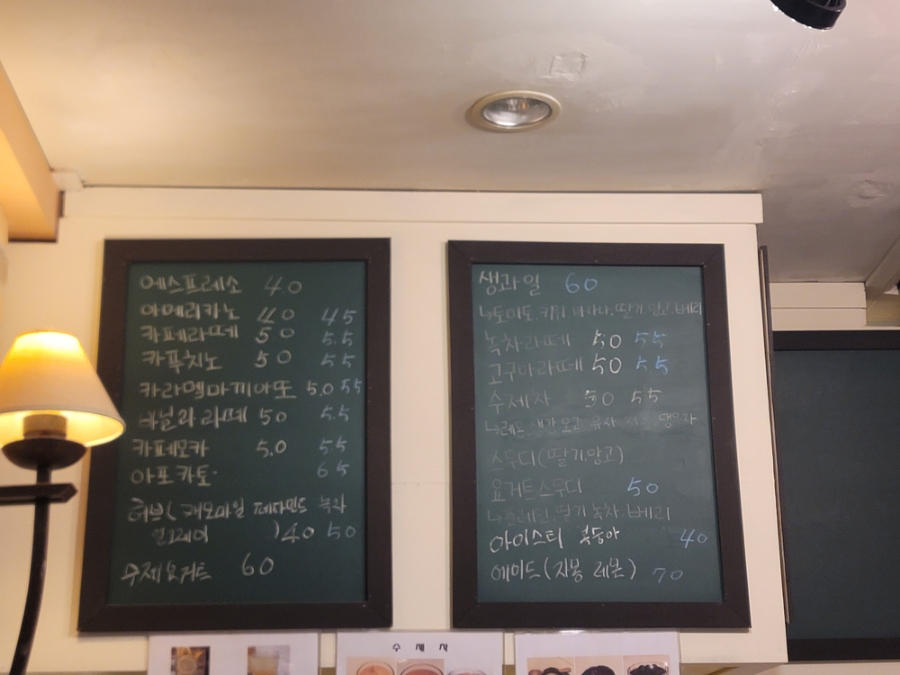 에스프레소 40
아메리카노 40 45
카페라떼 50 55
카푸치노 50 55
카라멜마끼아또 5.0 55
바닐라라떼 50 55
카페모카 5.0 55
아포카토 65
허브(캐모마일 페파민트 녹차
얼그레이 )40 50
수제요거트 60
생과일 60
↳토마토.키위.바나나.딸기.망고.베리
녹차라떼 50 55
고구마라떼 50 55
수제차 50 55
↳레몬.생강.모과.유자
스무디(딸기.망고)
요거트스무디 50
↳플레인.딸기.녹차.베리
아이스티 복숭아 40
에이드(자몽 레몬) 70
수 제 차